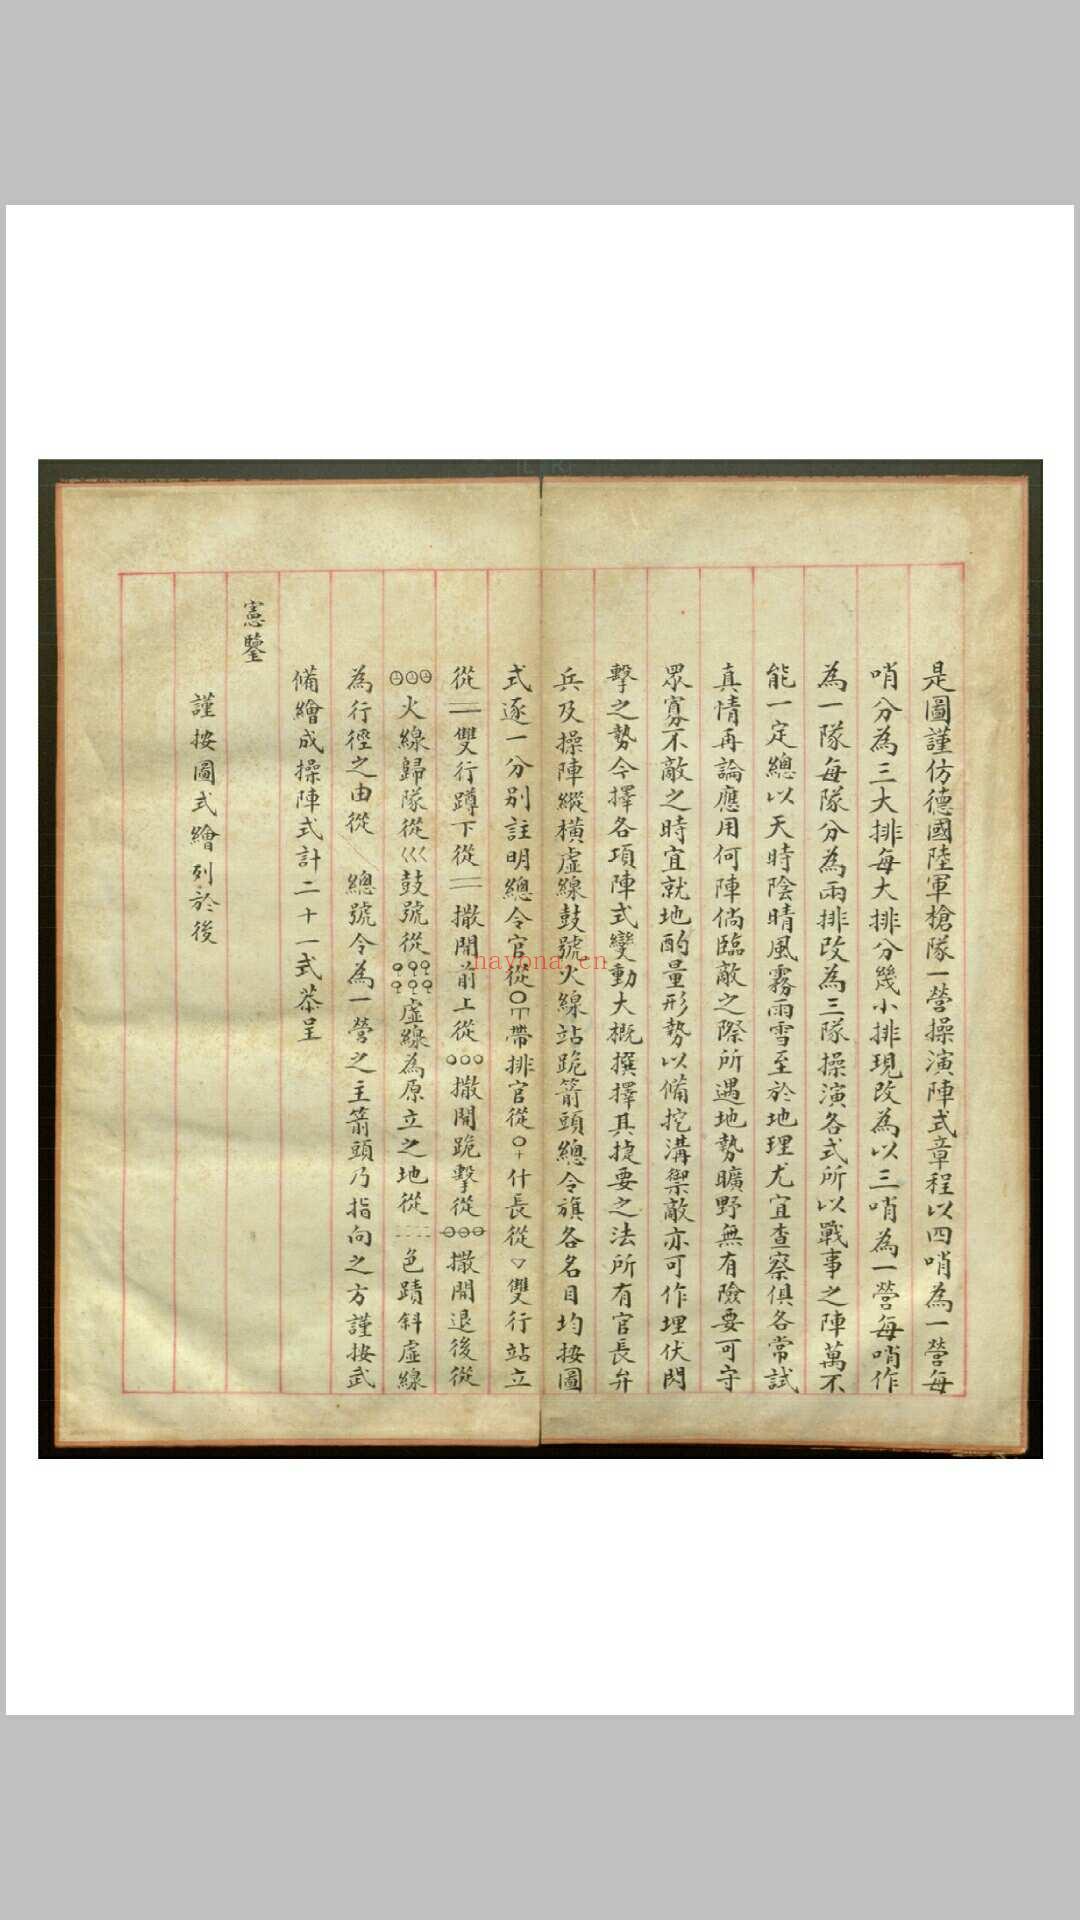 是圖謹仿德國陸軍槍隊一營操演陣式章程以四哨為一營每
哨分為三大排每大排分幾小排現改為以三哨為一營每哨作
為一隊每隊分為兩排改為三隊操演各式所以戰事之陣萬不
能一定總以天時陰晴風霧雨雪至於地理尤宜查察俱各常試
真情再論應用何陣倘臨敵之際所遇地勢曠野無有險要可守
眾寡不敵之時宜就地酌量形勢以備挖溝禦敵亦可作埋伏閃
擊之勢今擇各項陣式變動大概撰擇其捷要之法所有官長弁
兵及操陣縱橫虛線鼓號火線站跪箭頭總令旗各名目均按圖
式逐一分別註明總令官從 帶排官從 什長從▽雙行站立
從 雙行蹲下從 撒開前上從○○○撒開跪擊從 撒開退後從
火線歸隊從〱〱〱鼓號從 虛線為原立之地從 色蹟斜虛線
為行徑之由從 總號令為一營之主箭頭乃指向之方謹按武
備繪成操陣式計二十一式恭呈
憲鑒
謹按圖式繪列於後
nayona.cn